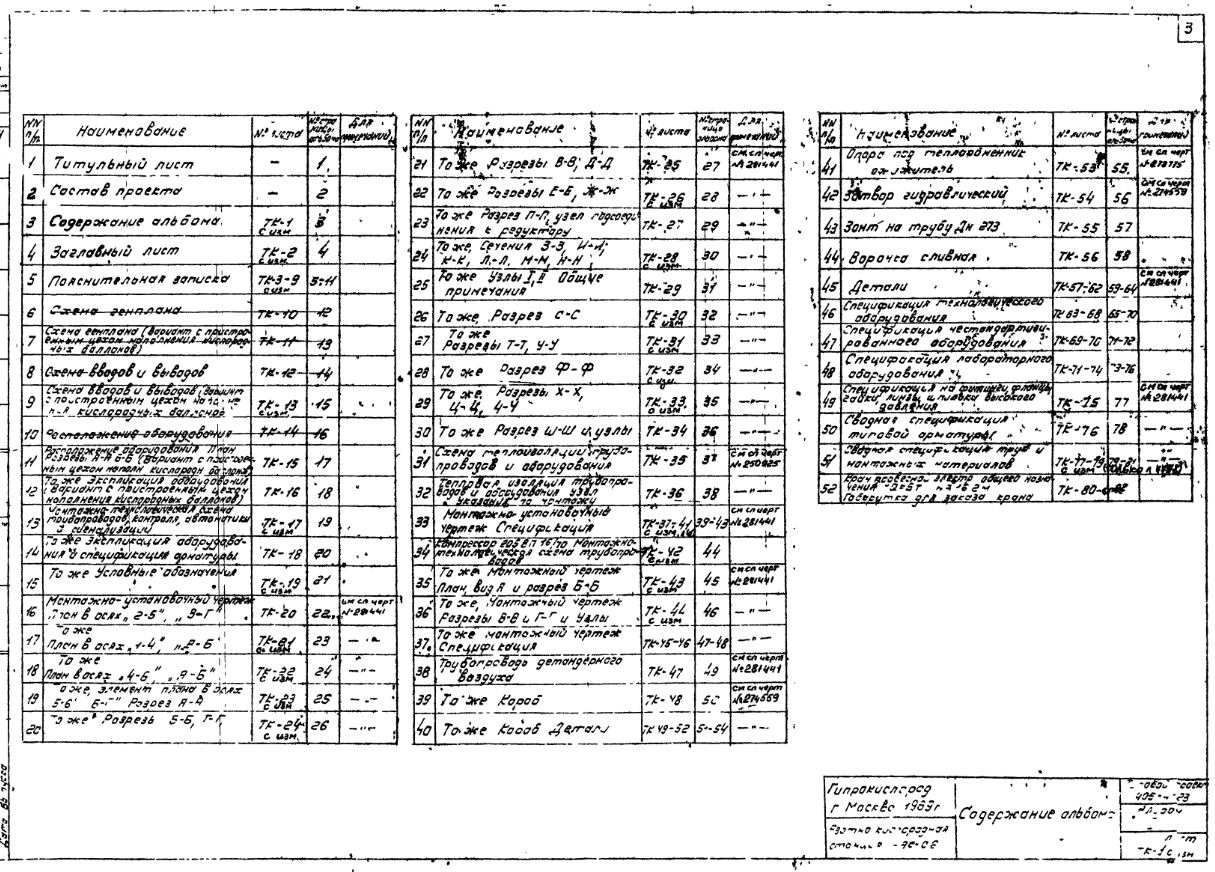 3
NN п/п Наименование № листа № страницы альбома Для примечаний
1 Титульный лист — 1
2 Состав проекта — 2
3 Содержание альбома ТК-1 с изм 3
4 Заглавный лист ТК-2 с изм 4
5 Пояснительная записка ТК3-9 с изм 5-11
6 Схема генплана ТК-10 12
7 Схема генплана (вариант с пристро-
енным цехом наполнения кислород-
ных баллонов) ТК-11 13
8 Схема вводов и выводов ТК-12 14
9 Схема вводов и выводов (вариант
с пристроенным цехом
кислородных баллонов ТК-13 с изм 15
10 Расположение оборудования ТК-14 16
11 Расположение оборудования План
Разрезы (вариант с пристроен-
ным цехом наполн кислородн баллонов) ТК-15 17
12 То же Экспликация оборудования
(вариант с пристроенным цехом
наполнения кислородных баллонов) ТК-16 18
13 Монтажно-технологическая схема
трубопроводов, контроля, автоматики
и сигнализации ТК-17 с изм 19
14 То же Экспликация оборудова-
ния и спецификация арматуры ТК-18 20
15 То же Условные обозначения ТК-19 с изм 21
16 Монтажно-установочный чертеж
План в осях "2-5", "В-Г" ТК-20 22 см сп черт №281441
17 То же
План в осях "1-4", ТК-21 с изм 23 —"—
18 То же
План в осях "4-6", ТК-22 с изм 24 —"—
19 То же, элемент плана в осях
5-6 Разрез А-А ТК-23 с изм 25 —"—
20 То же Разрезы Б-Б, Г-Г, ТК-24 с изм 26 —"—
NN п/п Наименование № листа № страницы альбома Для примечаний
21 То же Разрезы В-В; Д-Д ТК-25 27 см. сп черт №281441
22 То же Разрезы Е-Е, Ж-Ж ТК-26 с изм 28 —"—
23 То же Разрез П-П, узел подсоеди-
нения к редуктору ТК-27 29 —"—
24 То же, Сечения З-З, И-И;
К-К, Л-Л, М-М, Н-Н ТК-28 с изм 30 —"—
25 То же Узлы I, II Общие
примечания ТК-29 31 —"—
26 То же, Разрез С-С ТК-30 с изм 32 —"—
27 То же
Разрезы Т-Т, У-У ТК-31 с изм 33 —"—
28 То же Разрез Ф-Ф ТК-32 с изм 34 —"—
29 То же, Разрезы Х-Х,
Ц-Ц, Ч-Ч ТК-33 с изм 35 —"—
30 То же Разрез Ш-Ш и узлы ТК-34 36 —"—
31 Схема теплоизоляции трубо-
проводов и оборудования ТК-35 37 см сп черт
32 Тепловая изоляция трубопро-
водов и оборудования Узел
Указания по монтажу ТК-36 38 —"—
33 Монтажно-установочный
чертеж Спецификация ТК-37-41 с изм 39-43 см сп черт №281441
34 Компрессор Монтажно-
технологическая схема трубопро-
водов ТК-42 с изм 44
35 То же Монтажный чертеж
План, вид А и разрез Б-Б ТК-43 с изм 45 см сп черт №281441
36 То же, Монтажный чертеж
Разрезы В-В и Г-Г и Узлы ТК-44 с изм 46 —"—
37 То же монтажный чертеж
Спецификация ТК-45-46 47-48 —"—
38 Трубопровода детандерного
воздуха ТК-47 49 см сп черт №281441
39 То же Короб ТК-48 50 см сп черт №274559
40 То же Короб Детали ТК49-52 51-54 —"—
NN п/п Наименование № листа № страницы альбома Для примечаний
41 Опора под теплообменник
ожижитель ТК-53 55 см сп черт
42 Затвор гидравлический ТК-54 56 см сп черт №274559
43 Зонт на трубу Дн 273 ТК-55 57
44 Воронка сливная ТК-56 58
45 Детали ТК-57-62 59-64 см сп черт №281441
46 Спецификация технологического
оборудования ТК 63-68 65-70
47 Спецификация нестандартизи-
рованного оборудования ТК-69-70 71-72
48 Спецификация лабораторного
оборудования ТК-71-74 73-76
49 Спецификация на фитинги, фланцы,
гайки, линзы и пробки высокого
давления ТК-75 77 см сп черт №281441
50 Сводная спецификация
типовой арматуры ТК-76 78 —"—
51 Сводная спецификация труб и
монтажных материалов ТК-77-79 —"—
52 Кран подвесной электр общего назна-
чения
Габаритка для заказа крана ТК-80 82
Гипрокислород
г Москва 1969г
Содержание альбома
ТК-1 с изм